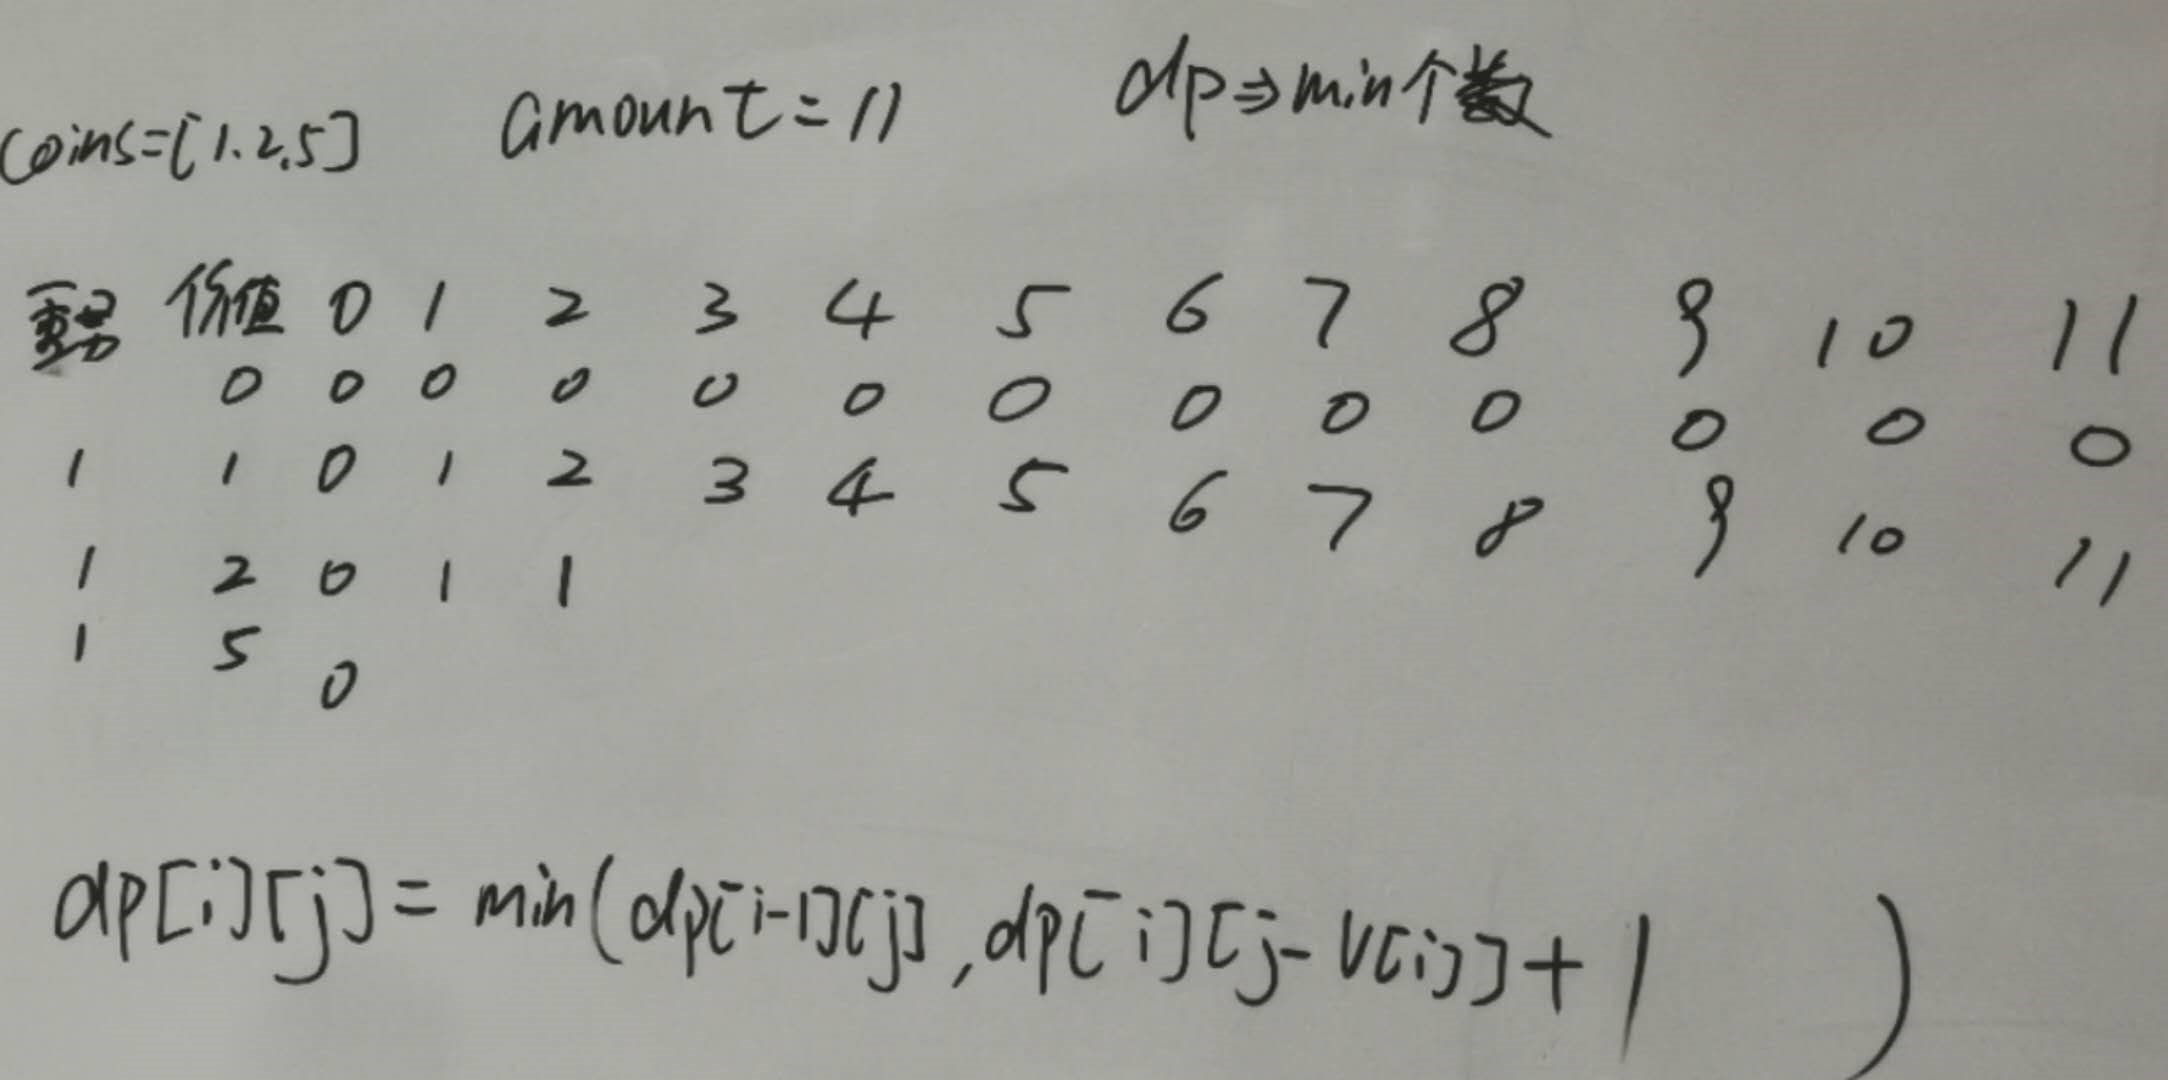 coins=[1.2.5] amount=11 dp⇒min个数
价值 0 1 2 3 4 5 6 7 8 9 10 11
0 0 0 0 0 0 0 0 0 0 0 0 0
1 1 0 1 2 3 4 5 6 7 8 9 10 11
1 2 0 1 1
1 5 0
dp[i][j]=min(dp[i-1][j],dp[i][j-v[i]]+1)